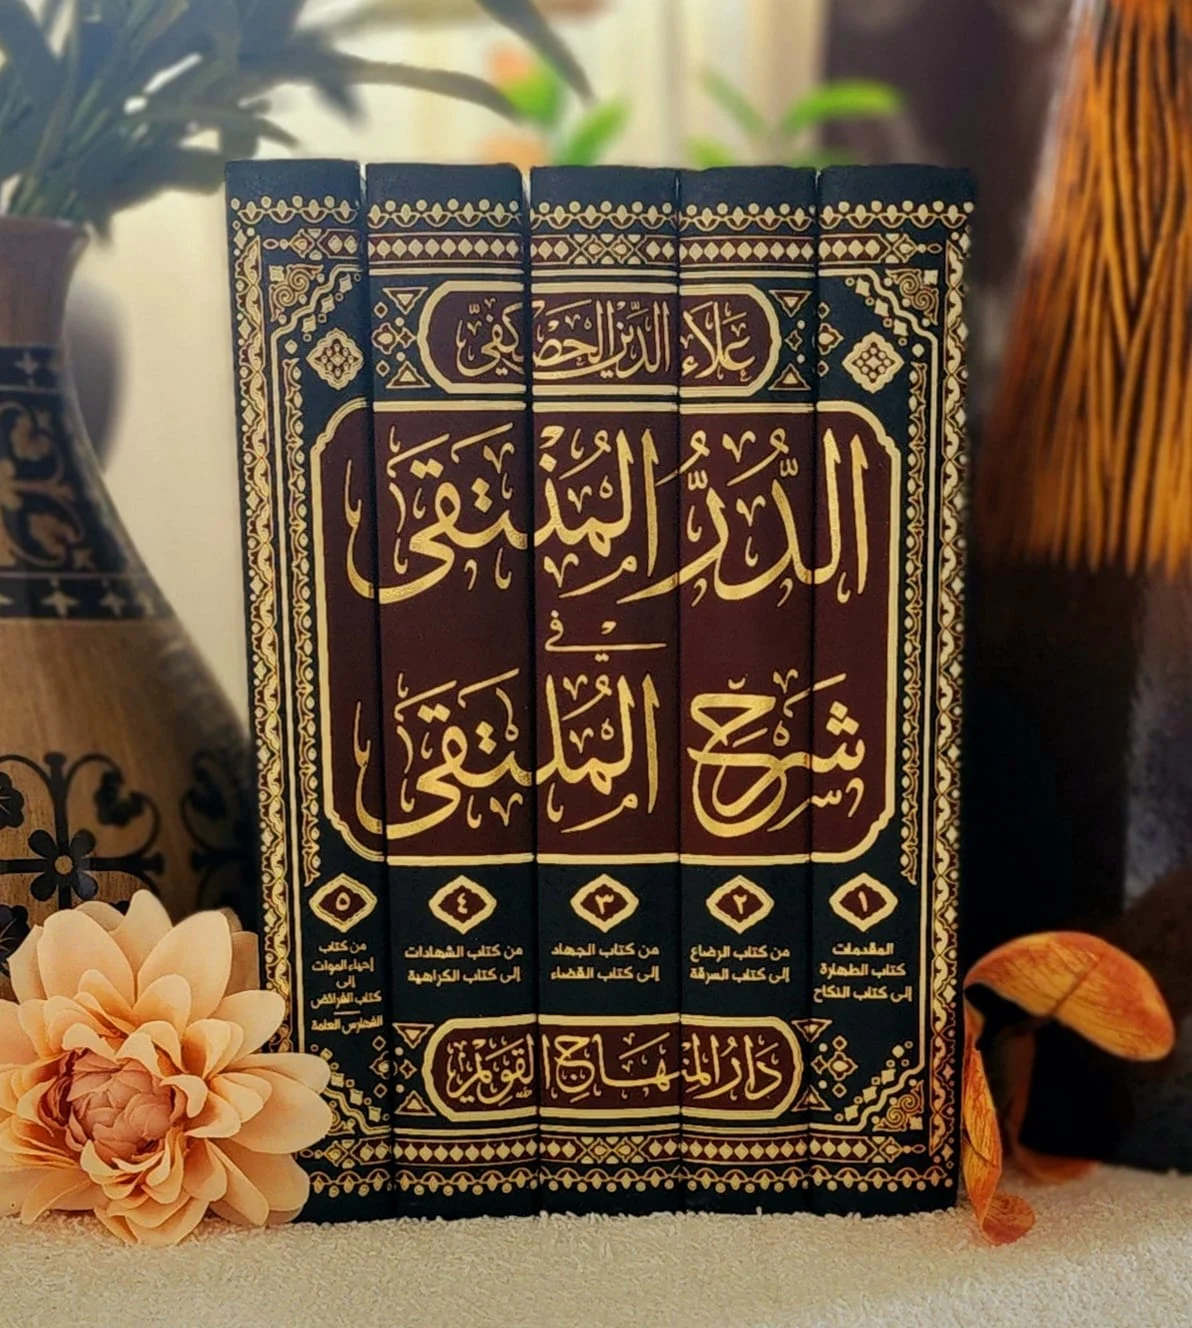 علاء الدين الحصكفي
الدُّرُّ المُنْتَقَى
فِي
شَرْحِ المُلْتَقَى
١
المقدمات
كتاب الطهارة
إلى كتاب النكاح
٢
من كتاب الرضاع
إلى كتاب السرقة
٣
من كتاب الجهاد
إلى كتاب القضاء
٤
من كتاب الشهادات
إلى كتاب الكراهية
٥
من كتاب
إحياء الموات
إلى
كتاب الفرائض
الفهارس العامة
دار المنهاج القويم